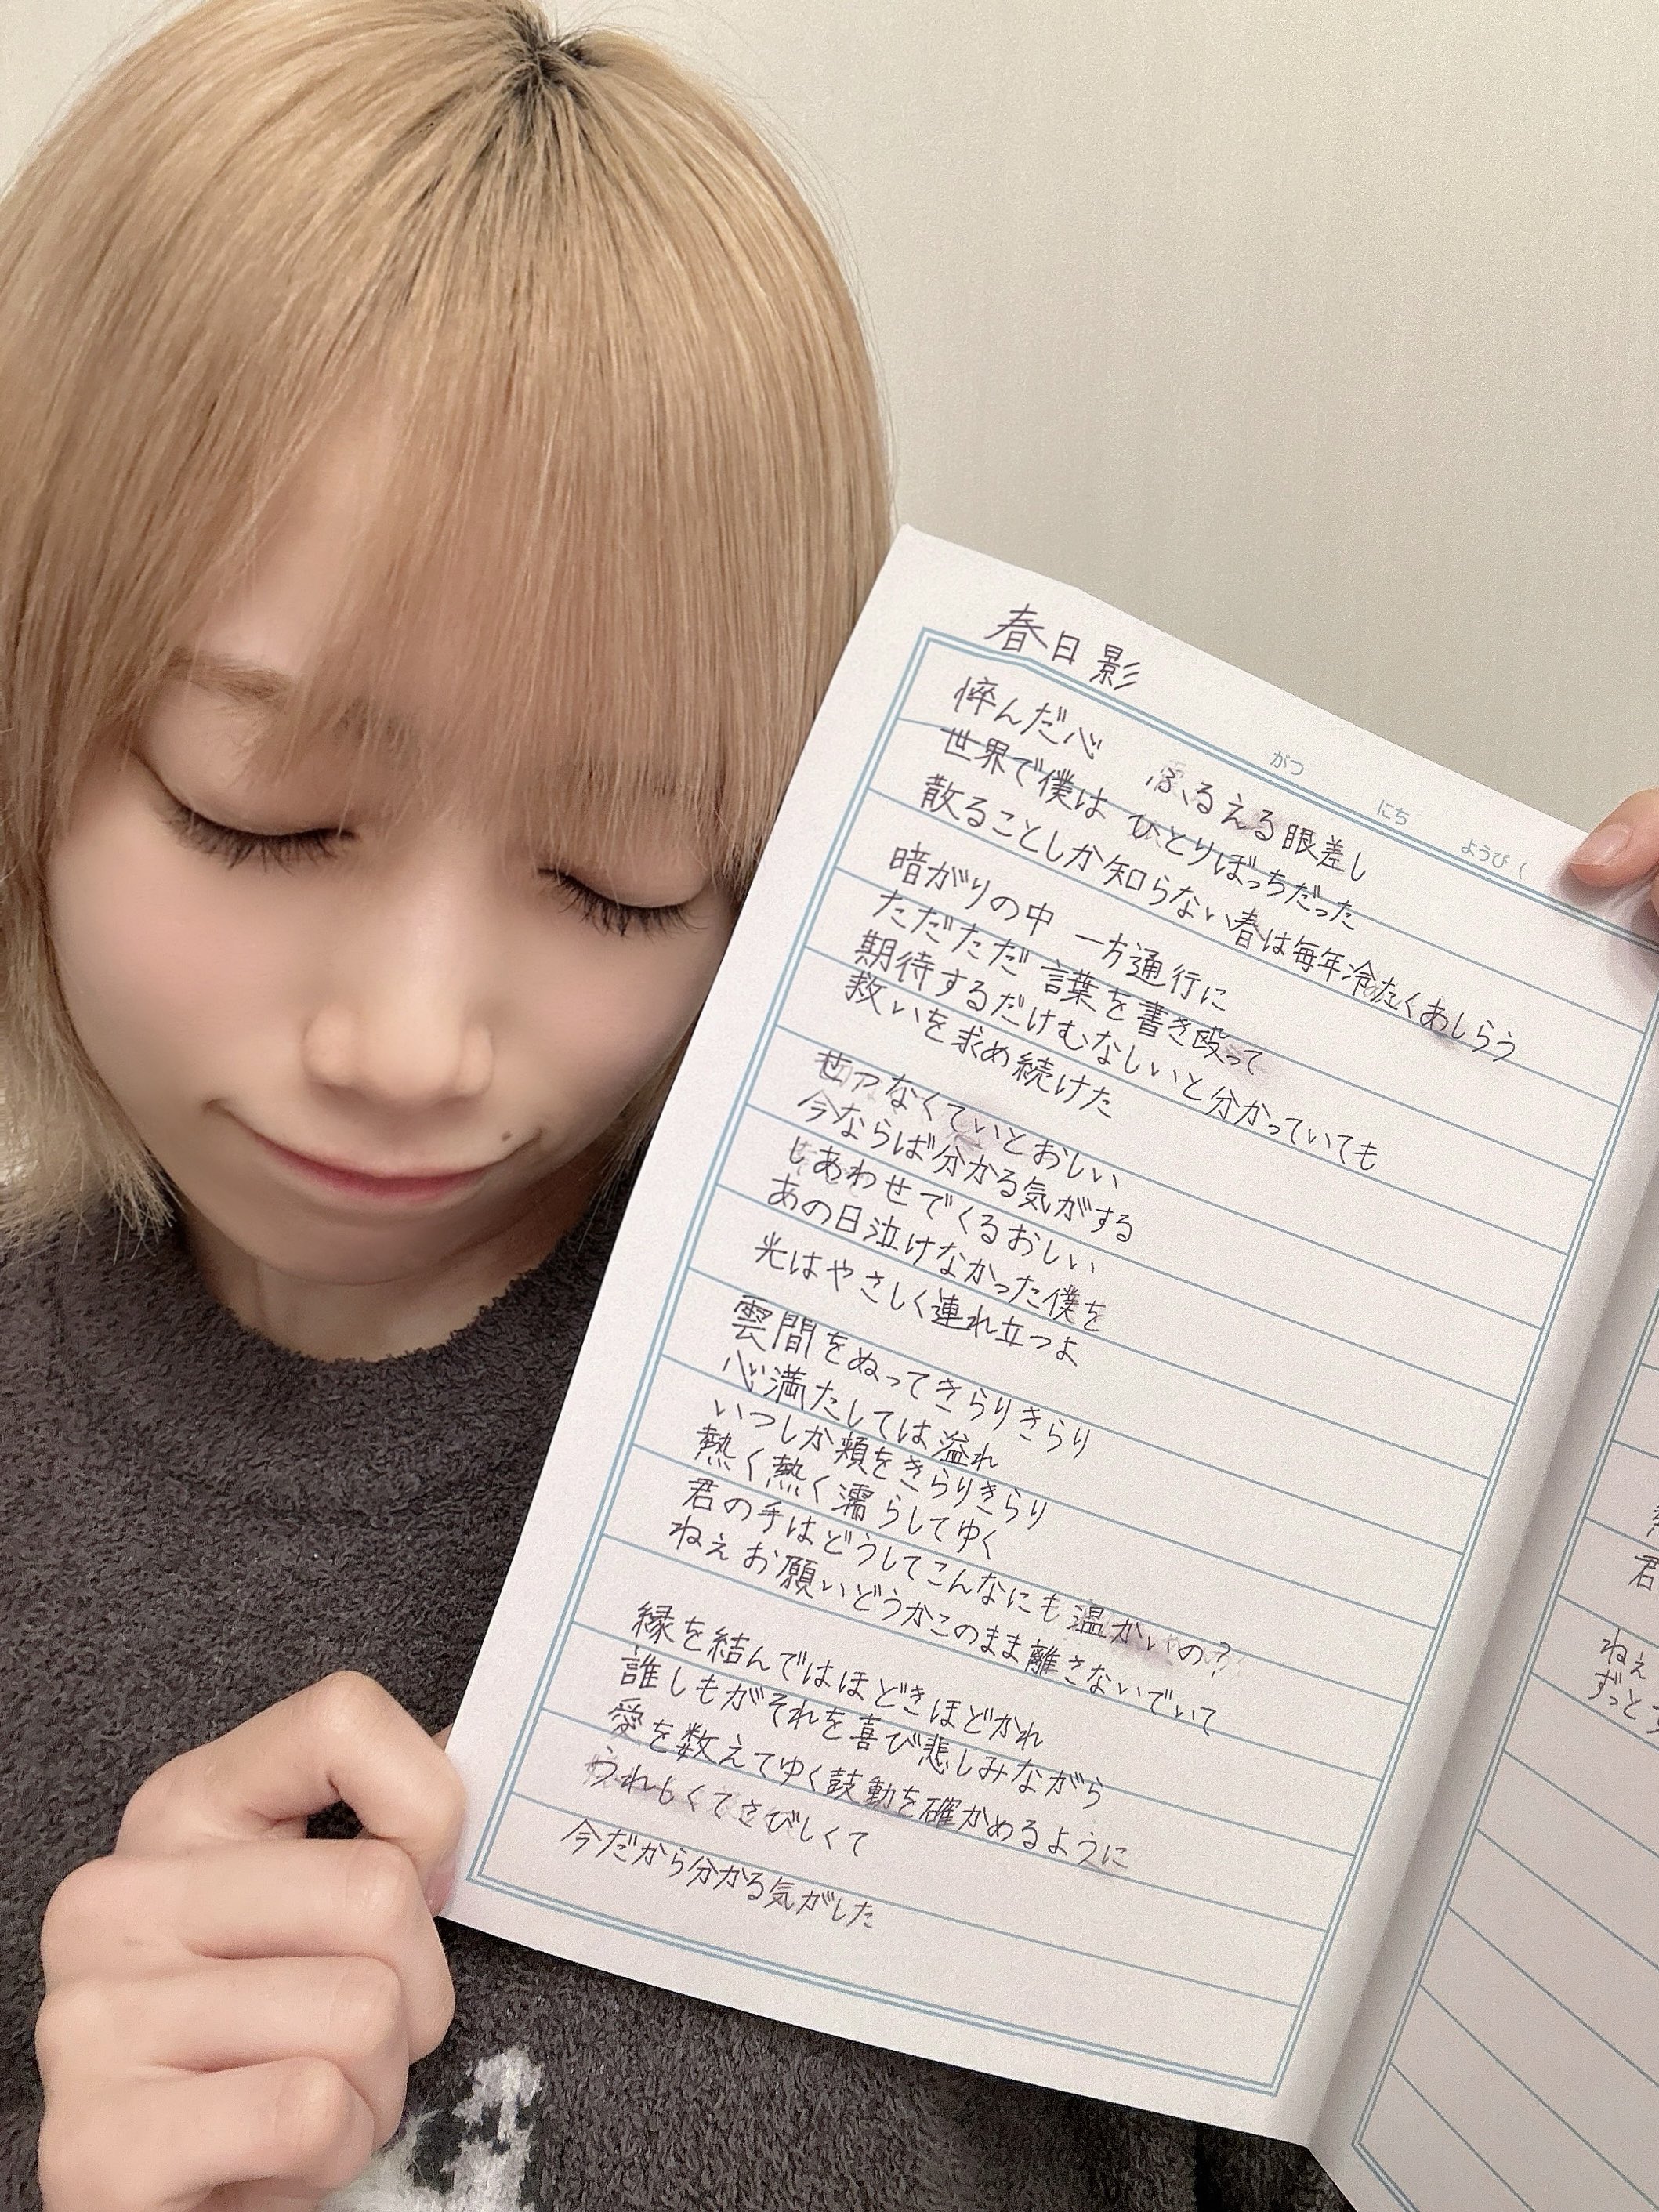 春日影
がつ にち ようび (
悴んだ心 ふるえる眼差し
世界で僕は ひとりぼっちだった
散ることしか知らない春は毎年冷たくあしらう
暗がりの中 一方通行に
ただただ 言葉を書き殴って
期待するだけむなしいと分かっていても
救いを求め続けた
せつなくていとおしい
今ならば分かる気がする
しあわせでくるおしい
あの日泣けなかった僕を
光はやさしく連れ立つよ
雲間をぬってきらりきらり
心満たしては溢れ
いつしか頬をきらりきらり
熱く熱く濡らしてゆく
君の手はどうしてこんなにも温かいの?
ねぇお願いどうかこのまま離さないでいて
縁を結んではほどきほどかれ
誰しもがそれを喜び悲しみながら
愛を数えてゆく鼓動を確かめるように
うれしくてさびしくて
今だから分かる気がした
君
ねぇ
ずっと